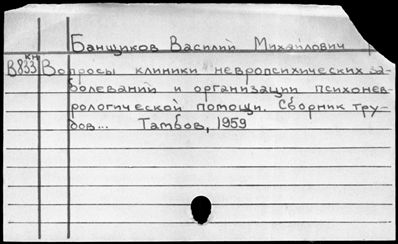 Банщиков Василий Михайлович
кн
В833 Вопросы клиники невропсихических за-
болеваний и организации психонев-
рологической помощи. Сборник тру-
дов... Тамбов, 1959